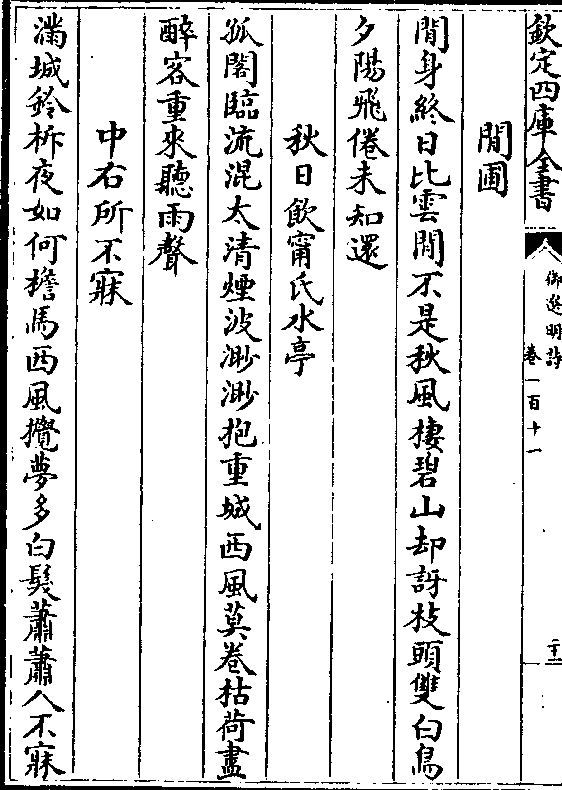 欽定四庫全書
御選明詩
卷一百十一
二十一
閒圃
閒身終日比雲閒不是秋風棲碧山却訝枝頭雙白鳥
夕陽飛倦未知還
秋日飲甯氏水亭
孤閣臨流混太清煙波渺渺抱重城西風莫卷枯荷盡
醉客重來聽雨聲
中右所不寐
滿城鈴柝夜如何檐馬西風攪夢多白髮蕭蕭人不寐